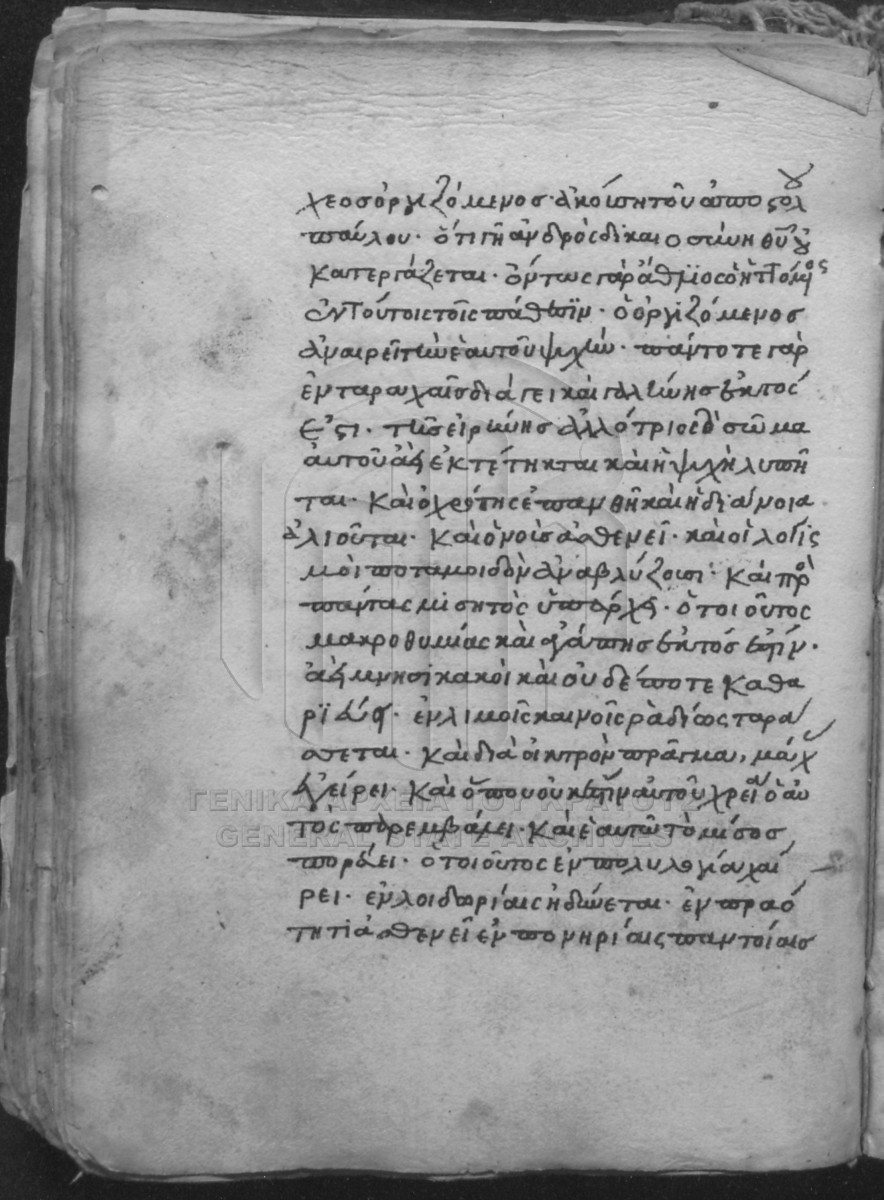 χεος ὀργιζόμενος· ἀκούση τοῦ ἀποστόλ
παύλου· ὅτι γῆ ἀνδρὸς δικαιοσύνη θῦ οὐ
κατεργάζεται· ὄντως γὰρ ἄθλιος
ἐν τούτοις τοῖς πάθεσϊν· ὁ ὀργιζόμενος
ἀναιρεῖ τὴν ἑαυτοῦ ψυχήν· πάντοτε γὰρ
ἐν ταραχαῖς διάγει καὶ γαλήνης ἐκτός
ἐστι· τῆς εἰρήνης ἀλλότριος τὸ σῶμα
αὐτοῦ ἀεὶ ἐκτέτηκται καὶ ἡ ψυχὴ λυπῆ
ται· καὶ ὁ χρώτης ἐπανθῆ καὶ ἡ διάνοια
ἀλιοῦται· καὶ ὁ νοῦς ἀσθενεῖ· καὶ οἱ λογισ
μοὶ ποταμοιδὸν ἀναβλύζουσι· καὶ πρὸ
πάντας μισητὸς ὑπάρχει· ὁ τοιοῦτος
μακροθυμίας καὶ ἀγάπης ἐκτός ἐστίν·
ἀεὶ μνησικακοὶ καὶ οὐδέποτε καθα
ρϊεύει· ἐν λιμοῖς καινοῖς ῥαδίως ταρά
σσεται· καὶ διὰ οἰκτρὸν πρᾶγμα, μάχ
ἐγείρει· καὶ ὅπου οὐκ ἐστὶν αὐτοῦ χρεία ὁ αὐ
τὸς παρεμβάλει· καὶ ἑαυτῶ τὸ μίσος
πορίζει· ὁ τοιοῦτος ἐν πολυλογία χαί
ρει· ἐν λοιδωρίαις ἡδύνεται· ἐν πραό
τητι ἀσθενεῖ ἐν πονηρίαις παντοίαις
ΓΕΝΙΚΑ ΑΡΧΕΙΑ ΤΟΥ ΚΡΑΤΟΥΣ
GENERAL STATE ARCHIVES